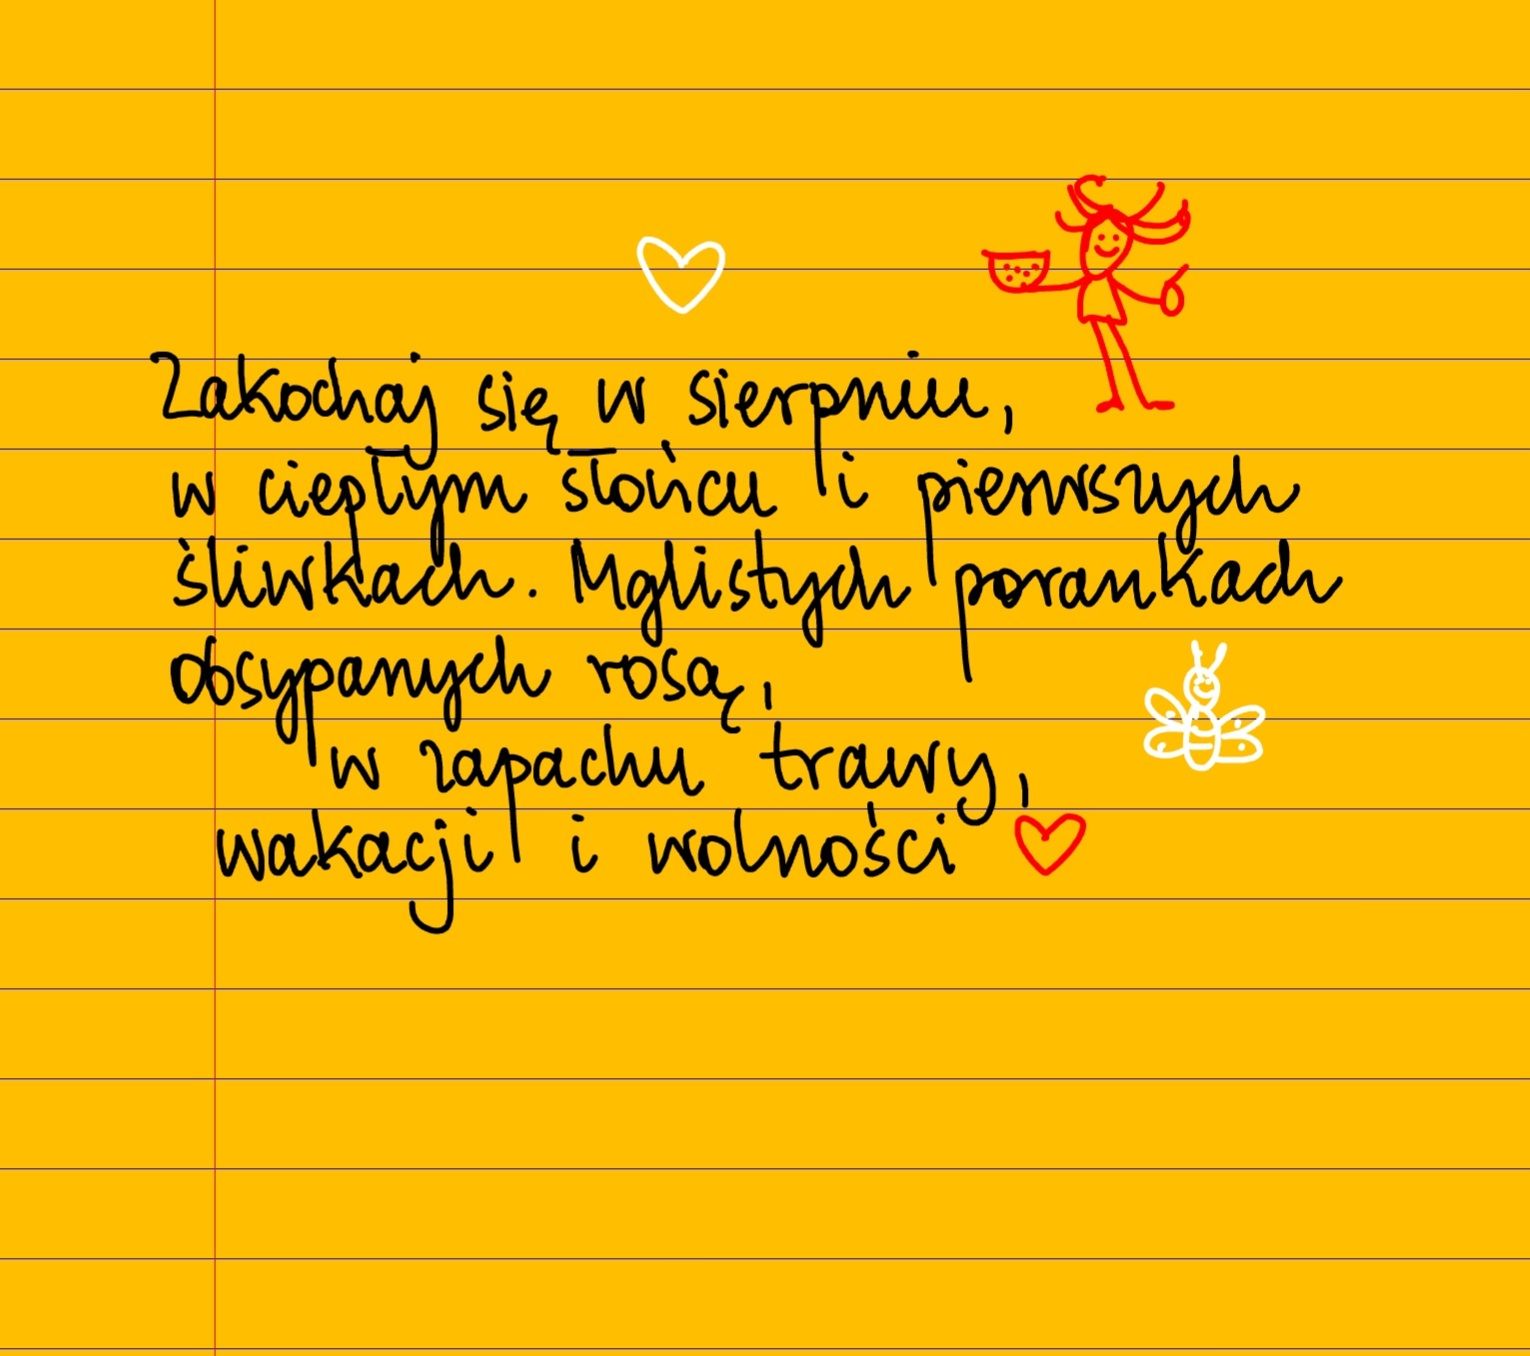 Zakochaj się w sierpniu,
w ciepłym słońcu i pierwszych
śliwkach. Mglistych porankach
obsypanych rosą,
w zapachu trawy,
wakacji i wolności